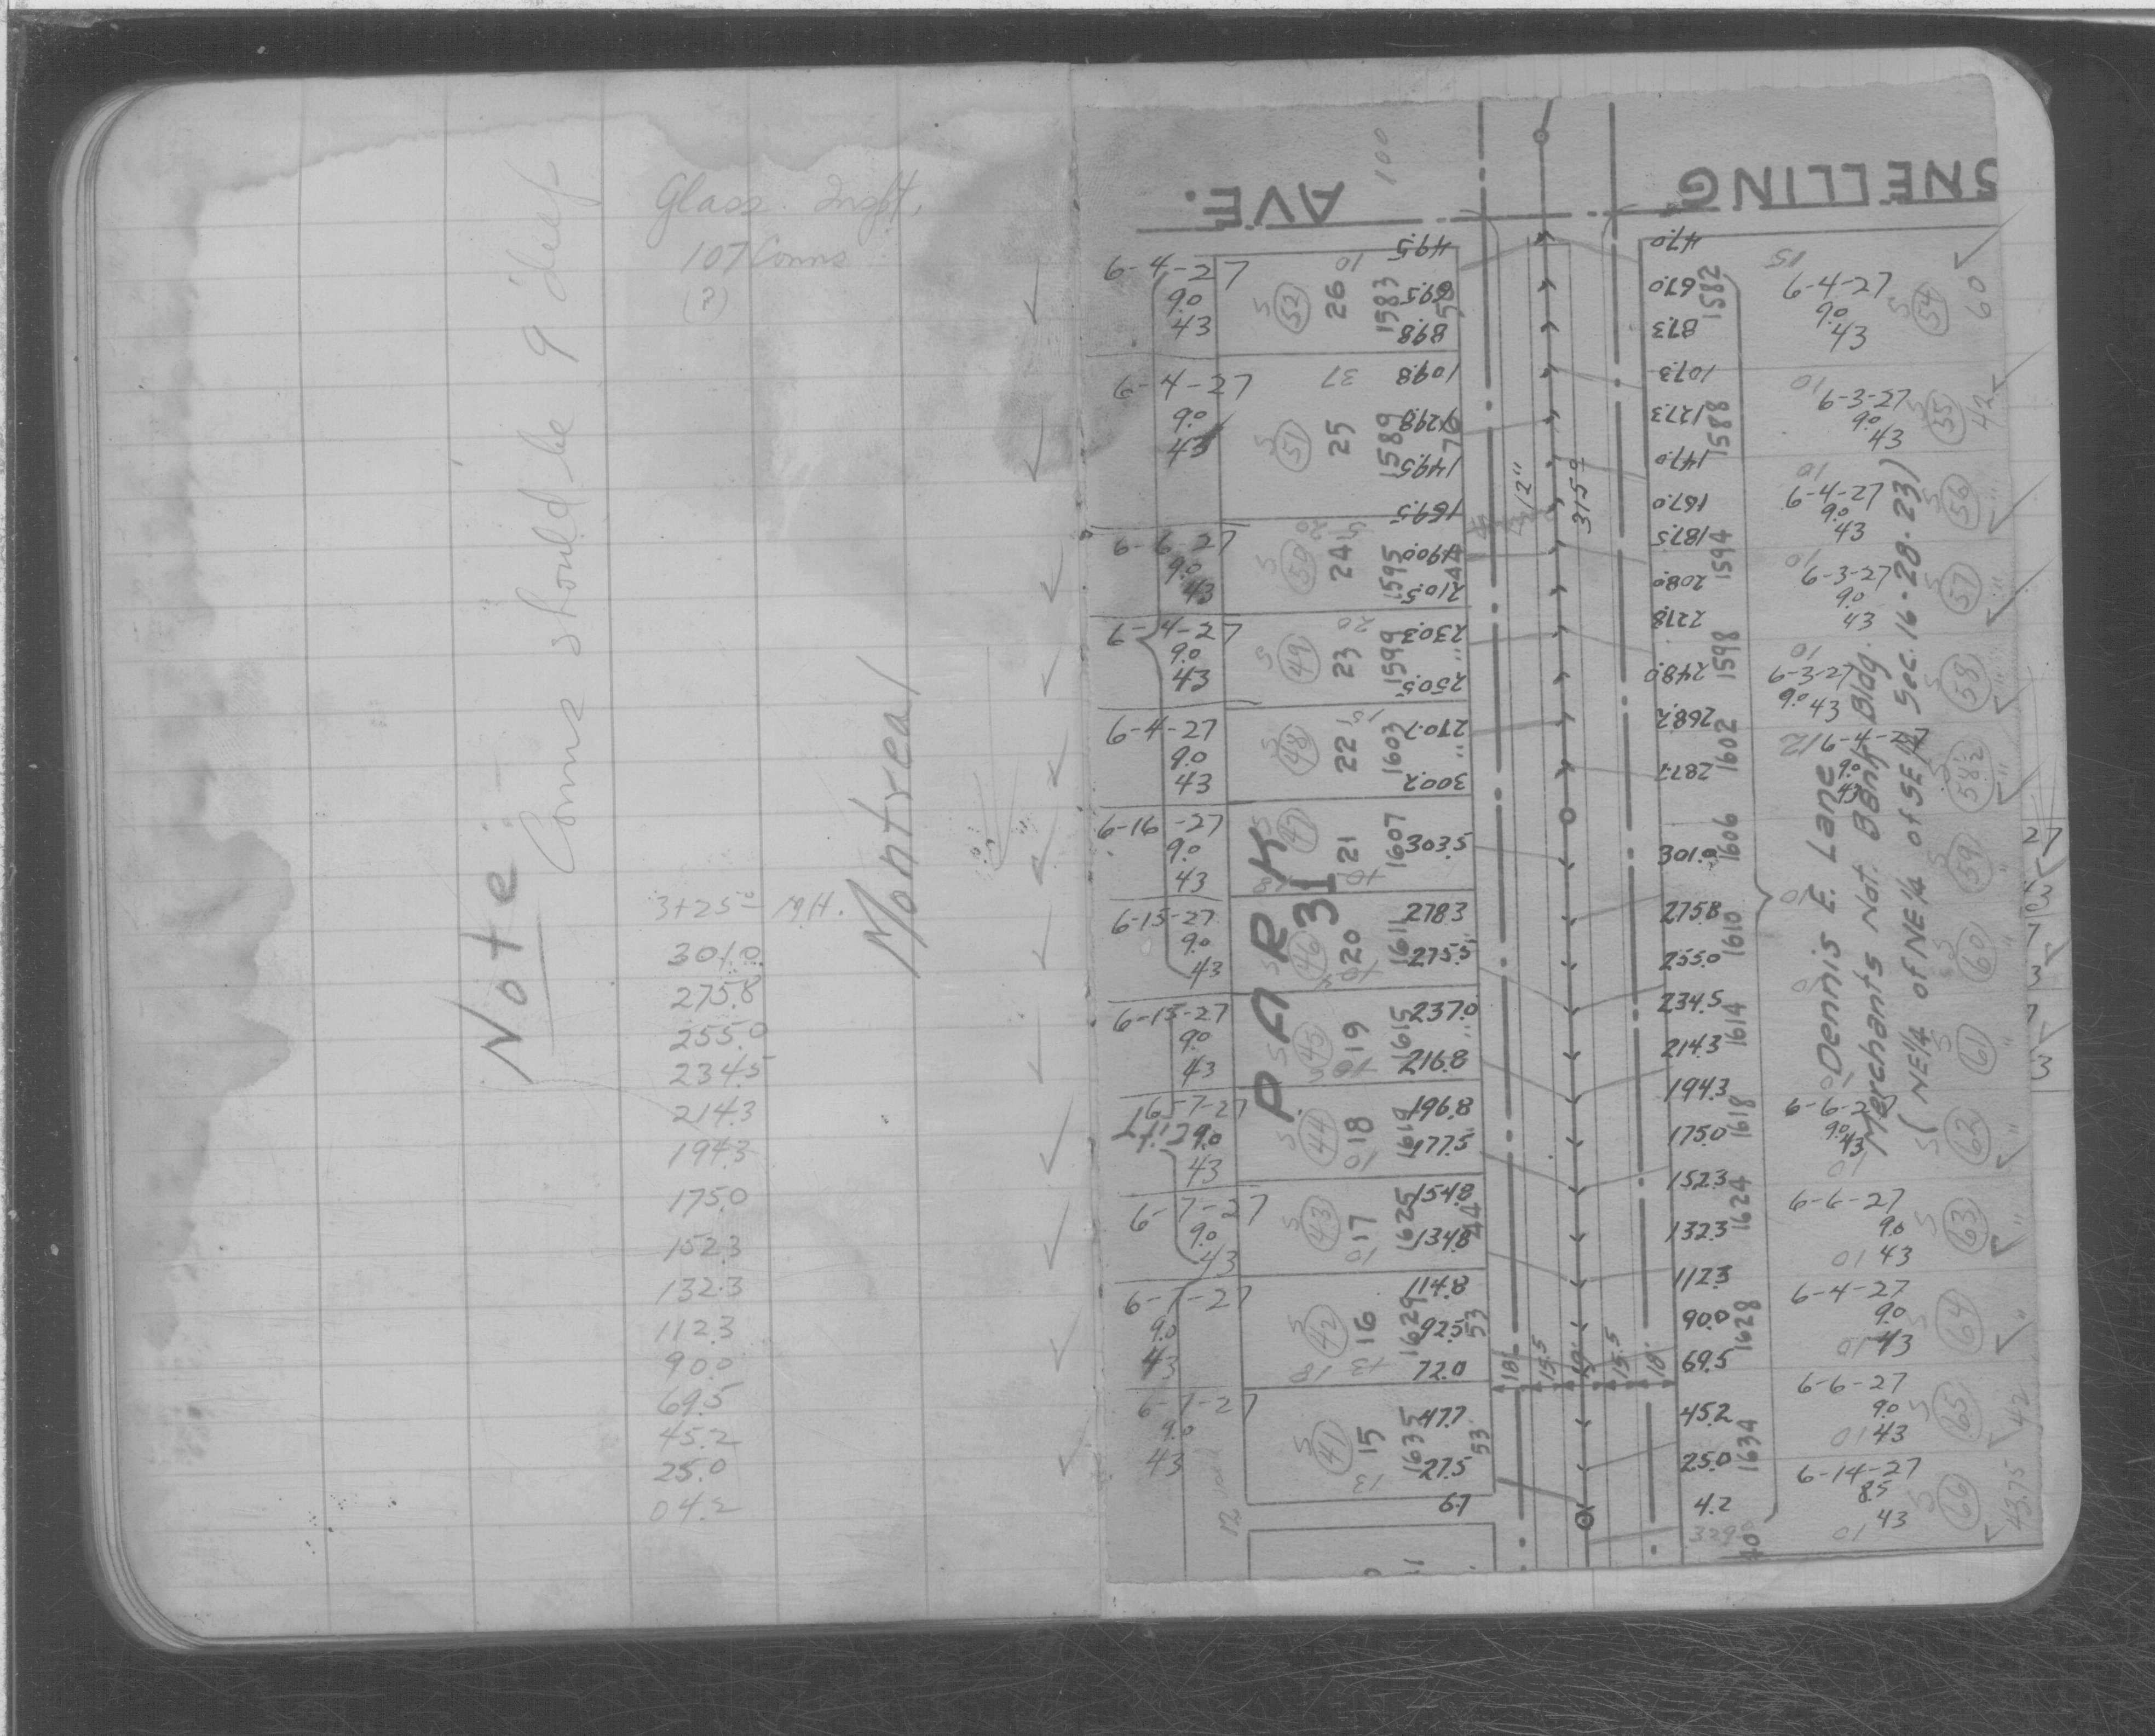 Glass. Inspt.
107 Conns
(?)
Note:-
Conns should be 9' deep
Montreal
3+25⁰ MH.
301.0
275.8
255.0
234.5
214.3
194.3
175.0
152.3
132.3
112.3
90.0
69.5
45.2
25.0
04.2
SNELLING AVE.
100
6-4-27
9.0
43
S 52
26
1583
10
49.5
69.5
89.8
6-4-27
9.0
43
S 51
25
1589
76
37
109.8
129.8
149.5
169.5
6-6-27
9.0
43
S 50
24
1595
44
190.0
210.5
6-4-27
9.0
43
S 49
23
1599
"
20
230.3
250.5
6-4-27
9.0
43
S 48
22
1603
"
270.7
300.2
6-16-27
9.0
43
S 47
21
1607
303.5
PARK
31
6-15-27
9.0
43
S 46
20
1611
278.3
275.5
6-15-27
9.0
43
S 45
19
1615
"
237.0
216.8
6-7-27
9.0
43
S 44
18
1619
10
196.8
177.5
6-7-27
9.0
43
S 43
17
1625
44
10
154.8
134.8
6-7-27
9.0
43
S 42
16
1629
53
114.8
92.5
72.0
6-7-27
9.0
43
S 41
15
1635
53
13
47.7
27.5
6.7
12"
315⁹
18'
15.5
15.5
18'
47.0
67.0
87.3
107.3
127.3
147.0
167.0
187.5
208.0
227.8
248.0
268.2
287.7
301.0
275.8
255.0
234.5
214.3
194.3
175.0
152.3
132.3
112.3
90.0
69.5
45.2
25.0
4.2
1582
1588
1594
1598
1602
1606
1610
1614
1618
1624
1628
1634
Dennis E. Lane
Merchants Nat. Bank Bldg.
(NE¼ of NE¼ of SE¼ Sec. 16-28-23)
15
6-4-27
9.0
43
S 54
60
10
6-3-27
9.0
43
S 55
42
10
6-4-27
9.0
43
S 56
"
10
6-3-27
9.0
43
S 57
"
10
6-3-27
9.0
43
S 58
"
12
6-4-27
9.0
43
S 58½
"
S 59
"
10
S 60
"
S 61
"
6-6-27
9.0
43
10
S 62
"
6-6-27
9.0
43
10
S 63
"
6-4-27
9.0
43
10
S 64
"
6-6-27
9.0
43
10
S 65
42
6-14-27
8.5
43
10
S 66
43.75
27
7
3
7
3